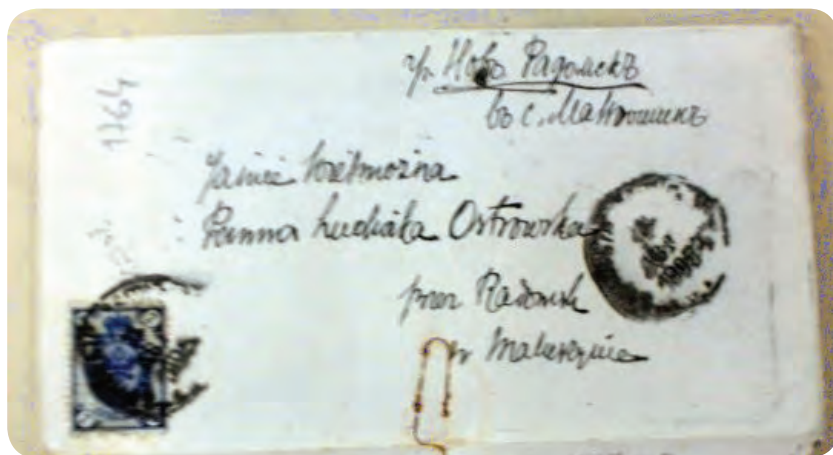 гр. Ново Радомскъ
въ с.
1764
Jaśnie Wielmożna
Panna Ludwika Ostrowska
przez Radomsk
w Maluszynie